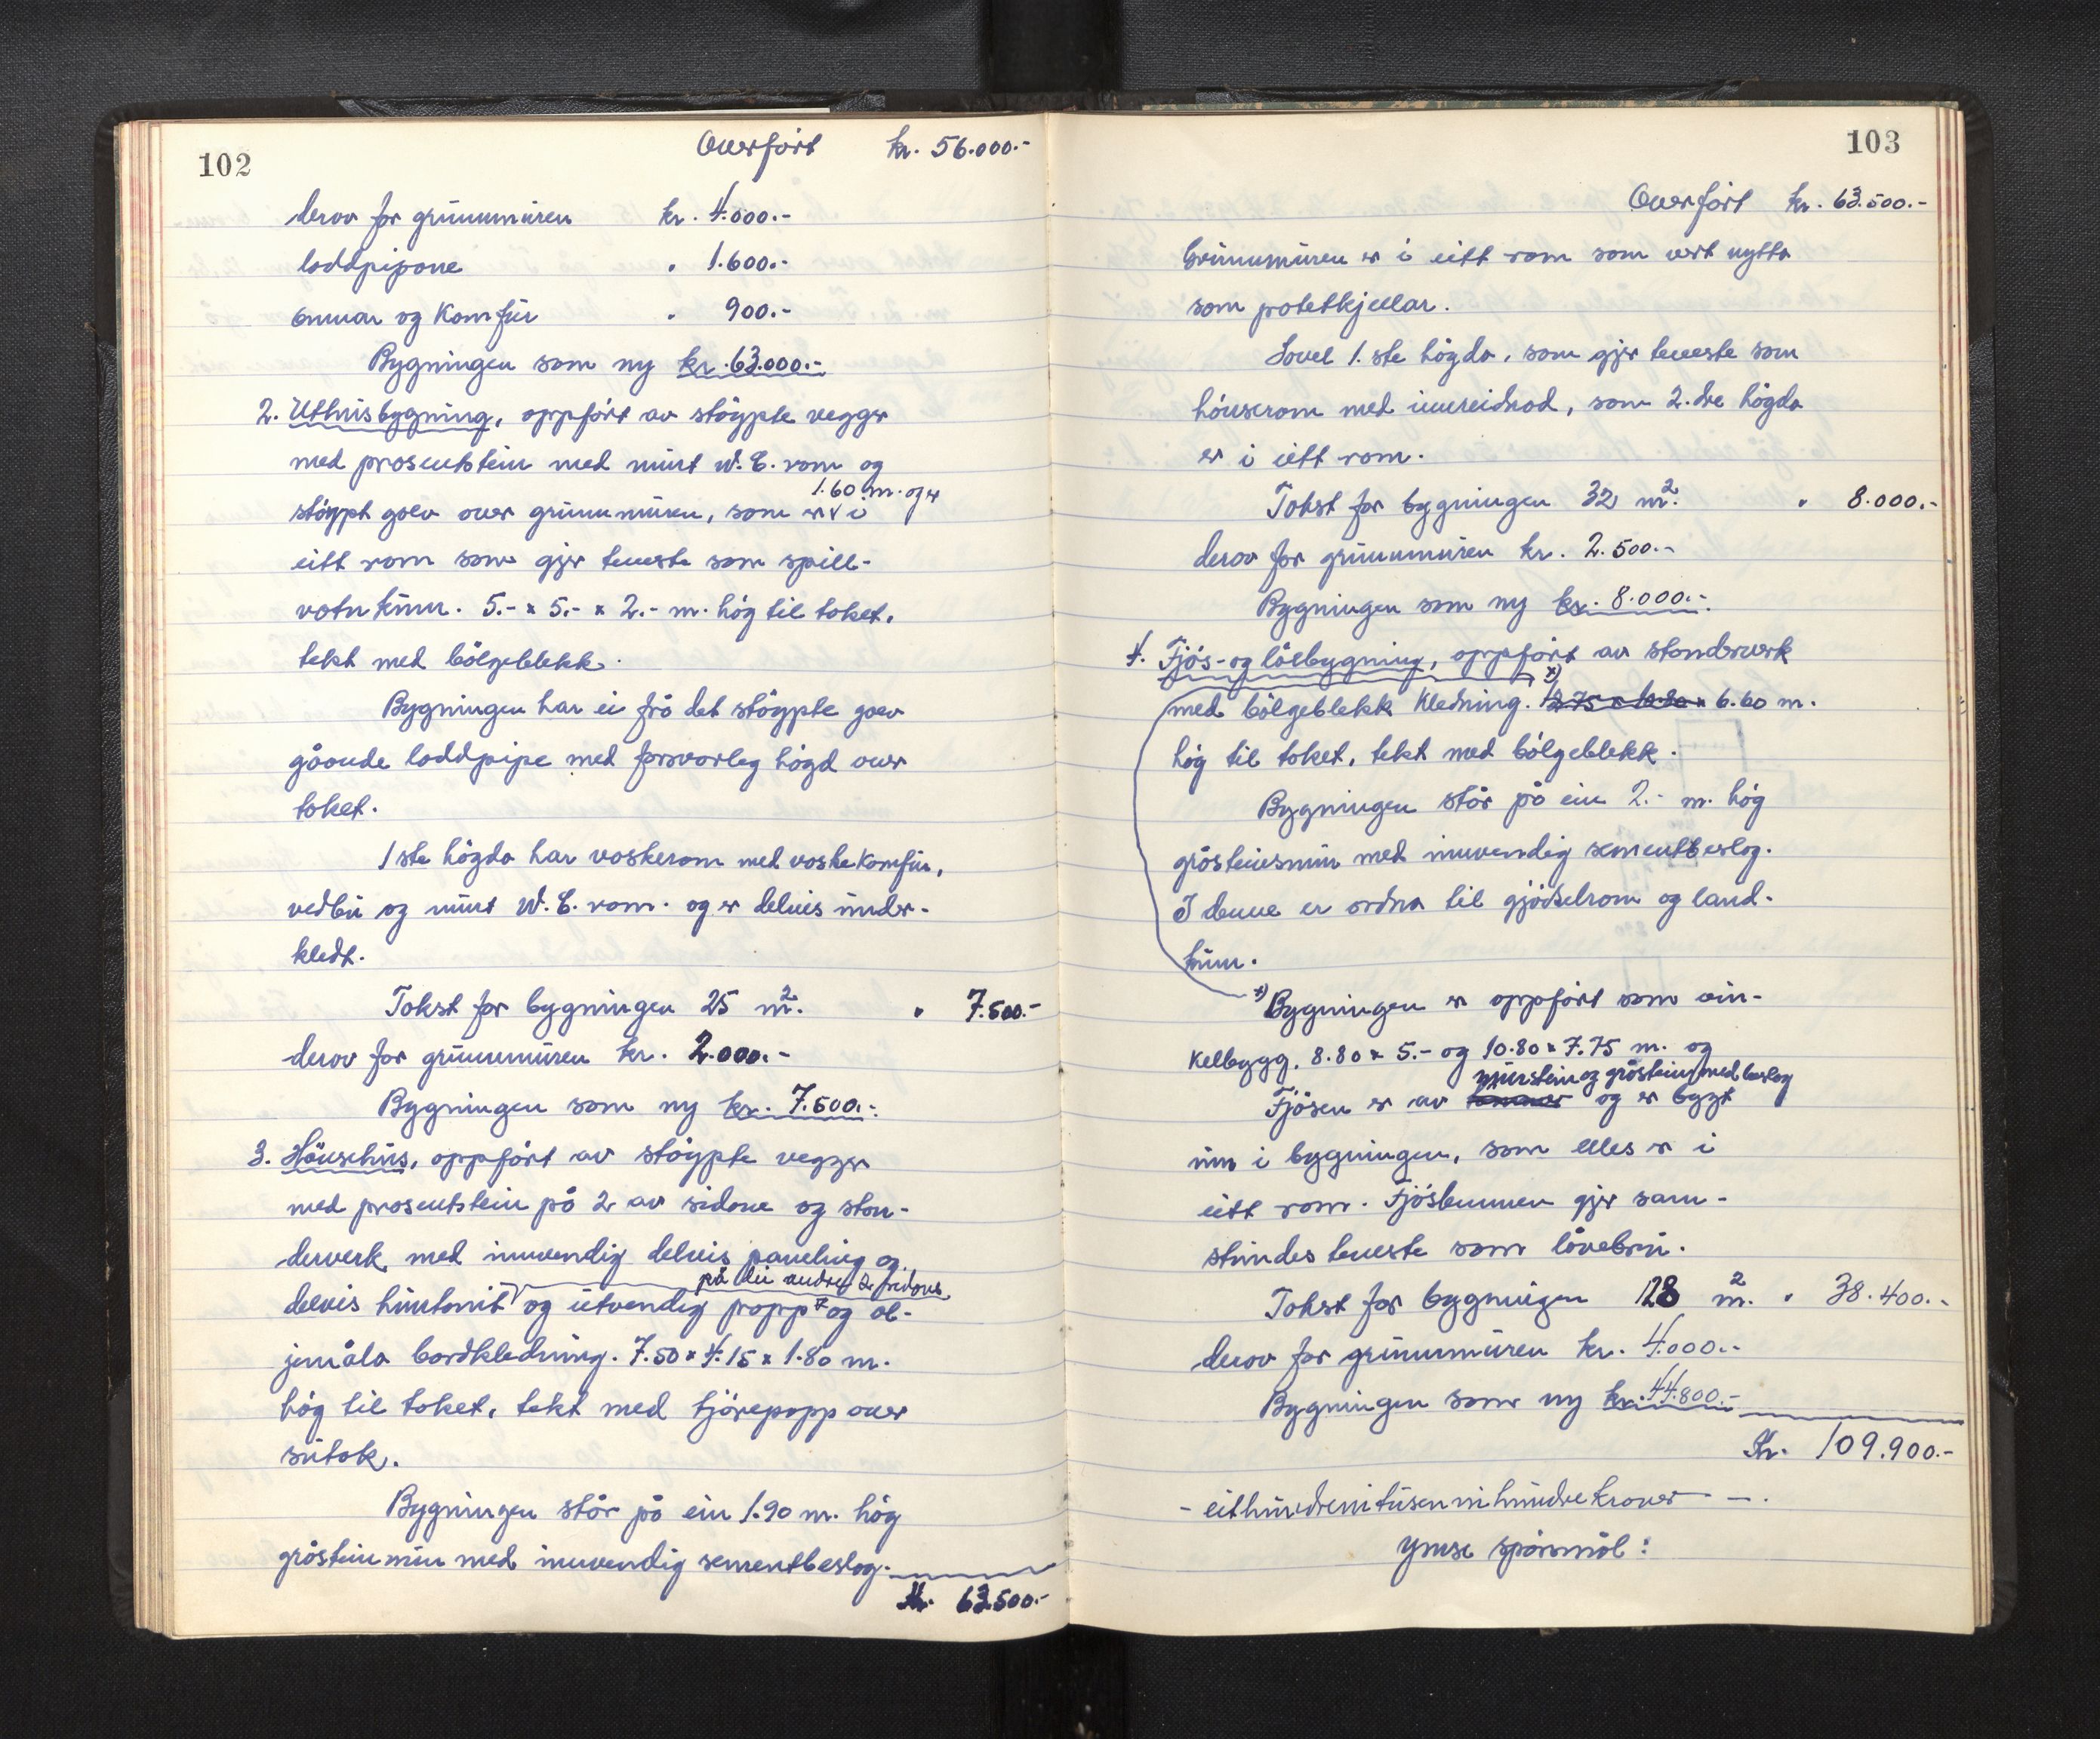 102
Overført kr. 56.000.-
derav for grunnmuren kr. 4.000.-
loddpipone " 1.600.-
omnar og komfur " 900.-
Bygningen som ny kr. 63.000.-
2. Uthusbygning, oppført av støypte vegger
med prosentstein med murt W.C. rom og
1.60 m. og er
støypt golv over grunnmuren, som er v i
eitt rom som gjer teneste som spill-
vatnkum. 5.- x 5.- x 2.- m. høg til taket,
tekt med bölgeblekk.
Bygningen har ei frå det støypte golv
gåande loddpipe med forsvarleg högd over
taket.
1 ste högda har vaskerom med vaskekomfur,
vedbu og murt W.C. rom. og er delvis under-
kledt.
Takst for bygningen 25 m². " 7.500.-
derav for grunnmuren kr. 2.000.-
Bygningen som ny kr. 7.500.-
3. Hönsehus, oppført av støypte vegger
med prosentstein på 2 av sidone og stan-
derverk med innvendig delvis paneling og
på dei andre 2 sidone.
delvis huntonit og utvendig papp og ol-
jemåla bordkledning. 7.50 x 4.15 x 1.80 m.
høg til taket, tekt med tjörepapp over
sutak.
Bygningen står på ein 1.90 m. høg
gråsteinmur med innvendig sementbeslag.
Kr. 63.500.-
103
Overført kr. 63.500.-
Grunnmuren er i eitt rom som vert nytta
som potetkjellar.
Såvel 1. ste högda, som gjer teneste som
hönserom med innreidnad, som 2.dre högda
er i eitt rom.
Takst for bygningen 32 m². " 8.000.-
derav for grunnmuren kr. 2.500.-
Bygningen som ny kr. 8.000.-
4. Fjös- og löebygning, oppført av standerverk
x)
med bölgeblekk kledning. 12.75 x 10.80 x 6.60 m.
høg til taket, tekt med bölgeblekk.
Bygningen står på ein 2.- m. høg
gråsteinsmur med innvendig sementbeslag.
I denne er ordna til gjödselrom og land-
kum.
x) Bygningen er oppført som vin-
kelbygg. 8.80 x 5.- og 10.80 x 7.75 m. og
murstein og gråstein med beslag
Fjösen er av og er bygt
inn i bygningen, som elles er i
eitt rom. Fjösbunnen gjer sam-
stundes teneste som låvebru.
Takst for bygningen 128 m². " 38.400.-
derav for grunnmuren kr. 4.000.-
Bygningen som ny kr. 44.800.-
Kr. 109.900.-
- eithundrenitusennihundrekroner - - .
Ymse spørsmål: